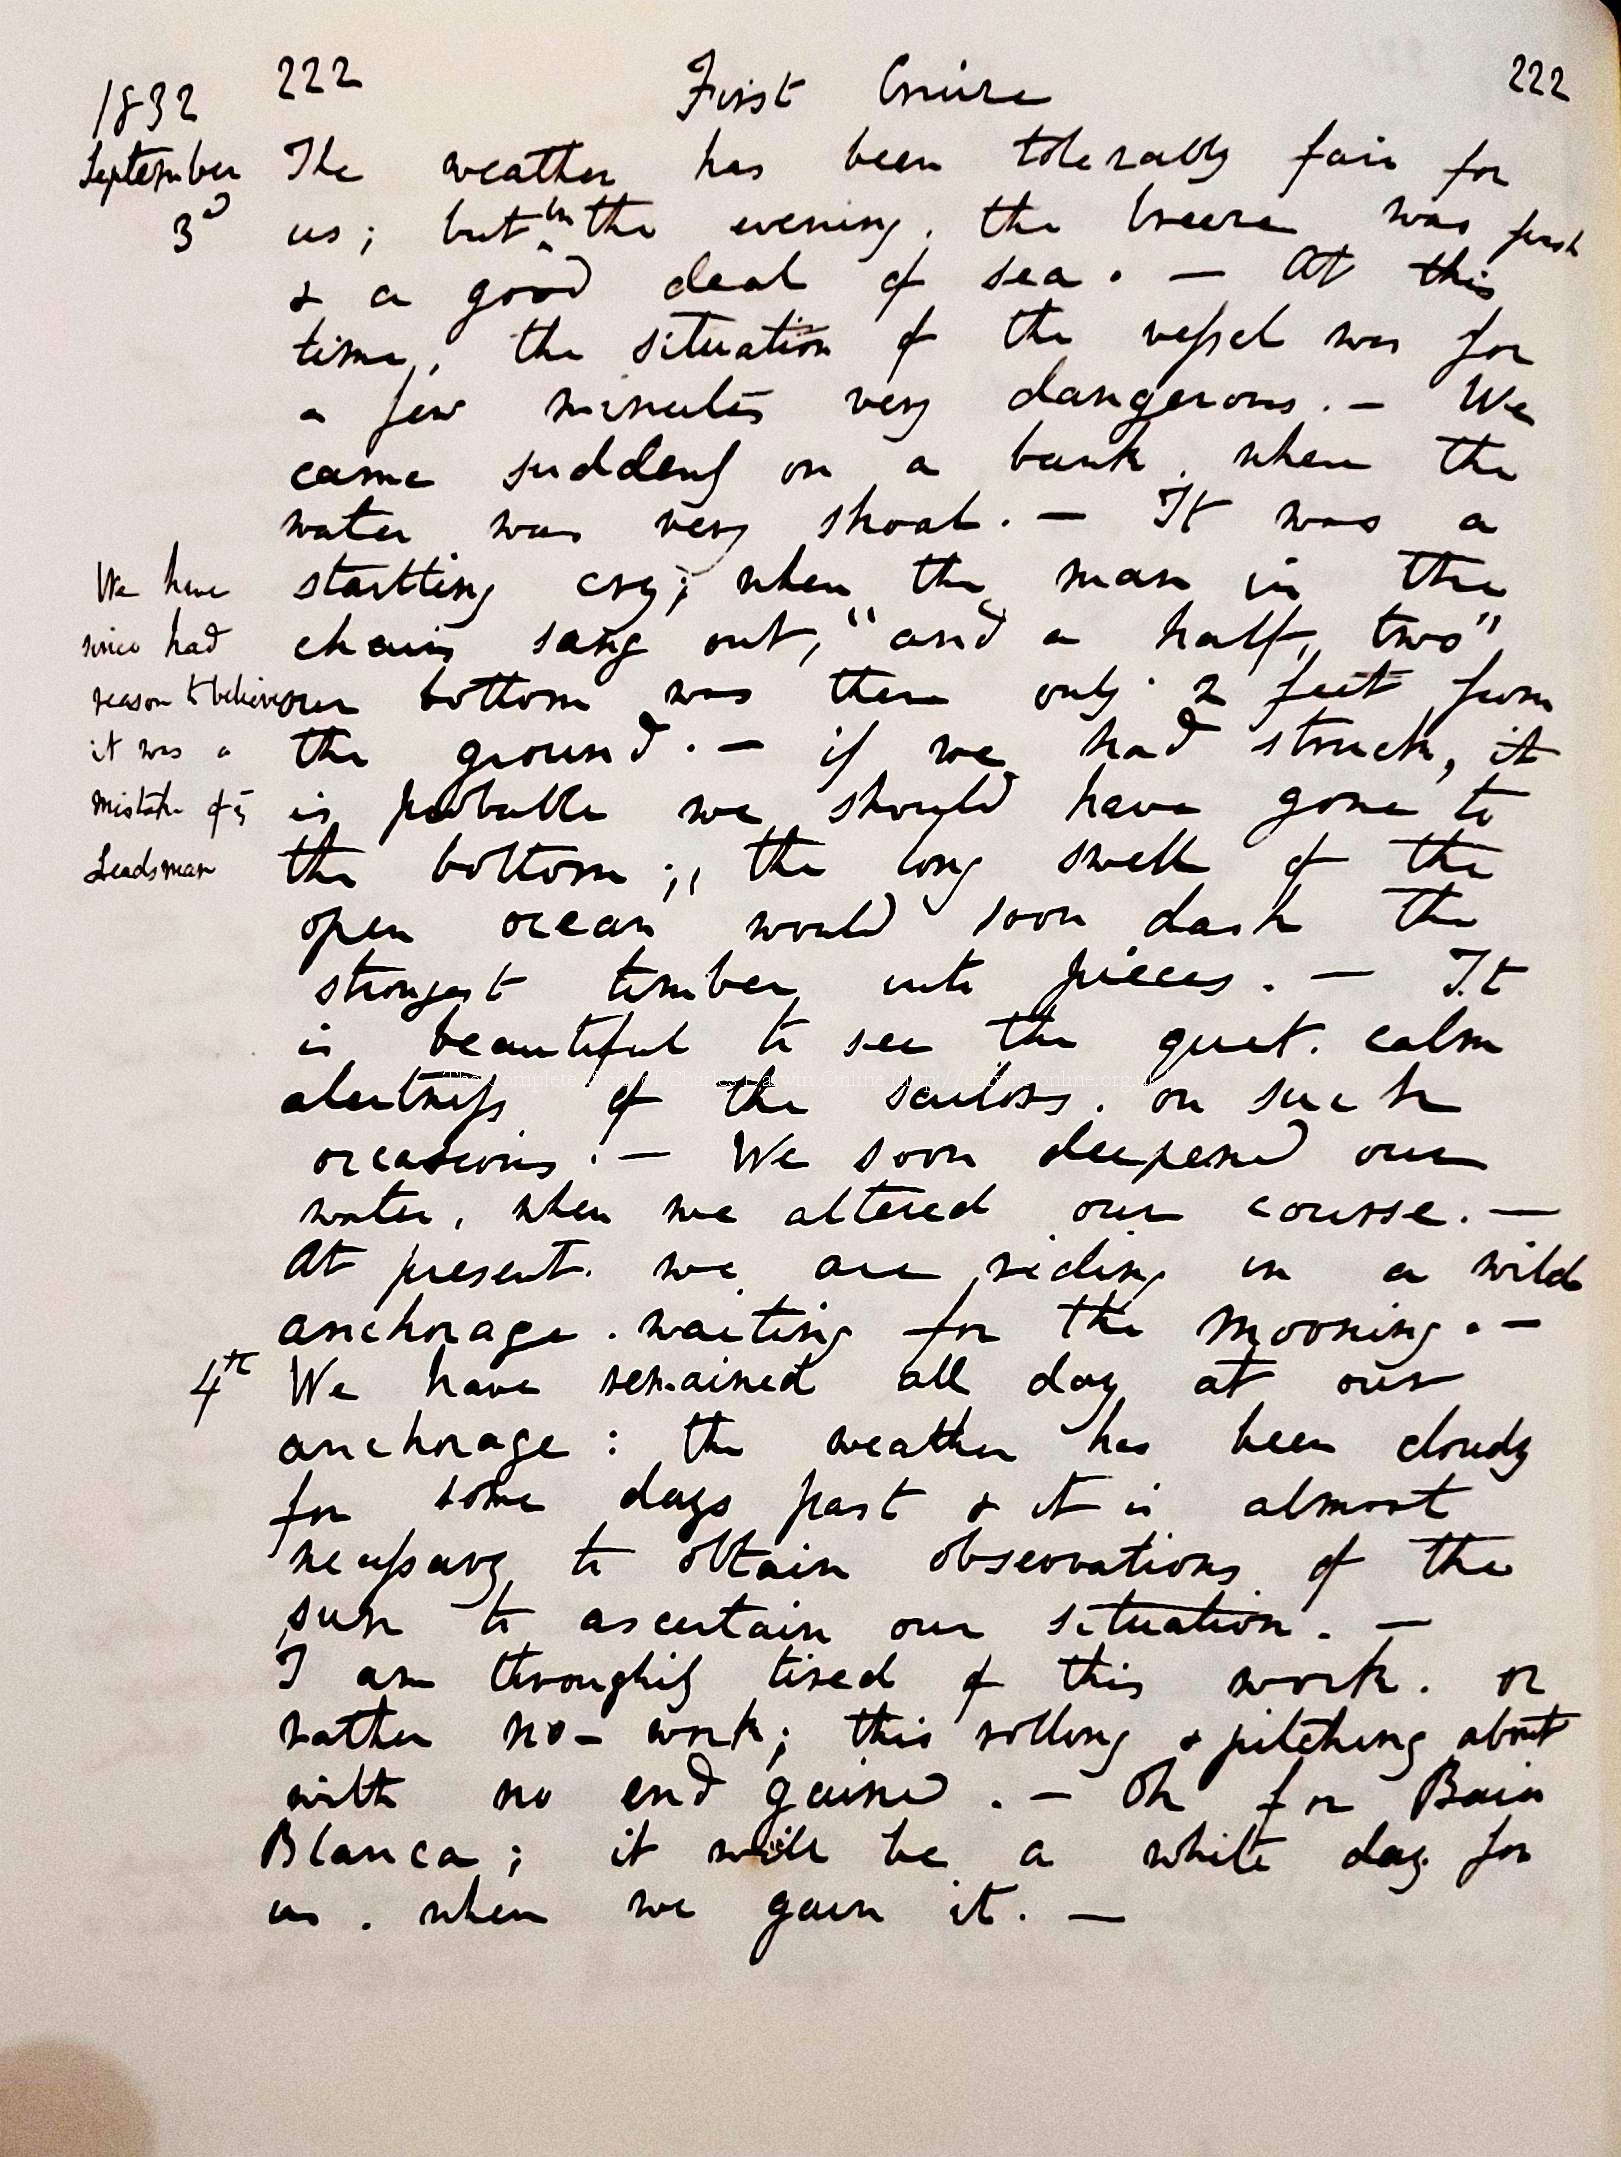 222 First Cruize 222
1832
September 3d
The weather has been tolerably fair for
us; but in the evening, the breeze was fresh
& a good deal of sea. — At this
time, the situation of the vessel was for
a few minutes very dangerous. — We
came suddenly on a bank, when the
water was very shoal. — It was a
startling cry; when the man in the
chains sang out, "and a half, two"
our bottom was then only 2 feet from
the ground. — if we had struck, it
is probable we should have gone to
the bottom; the long swell of the
open ocean would soon dash the
strongest timber into pieces. — It
is beautiful to see the quiet. calm
alertness of the sailors. on such
occasions. — We soon deepend our
water, when we altered our course. —
At present. we are riding in a wild
anchorage. waiting for the morning. —
We have
since had
reason to believe
it was a
mistake of
Leadsman
4th We have remained all day at our
anchorage: the weather has been cloudy
for some days past & it is almost
necessary to obtain observations of the
sun to ascertain our situation. —
I am throughily tired of this work. or
rather no-work; this rolling & pitching about
with no end gained. — Oh for Baia
Blanca; it will be a white day for
us. when we gain it. —